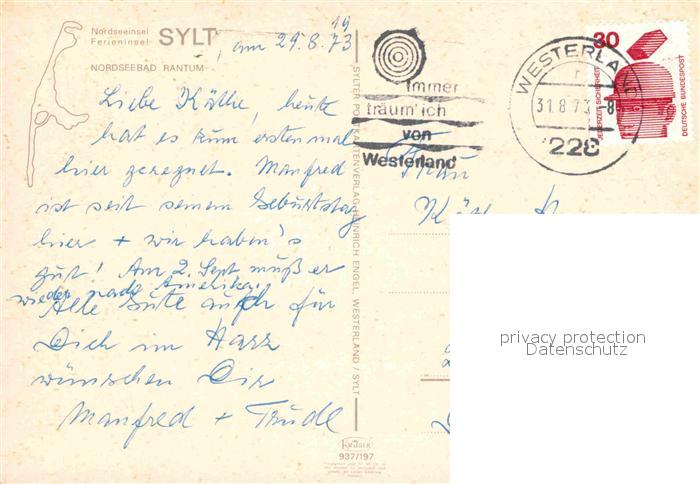 Nordseeinsel
Ferieninsel SYLT
NORDSEEBAD RANTUM
am 29.8.1973
Liebe Käthe, heute
hat es zum erstenmal
hier geregnet. Manfred
ist seit seinem Geburtstag
hier + wir haben's
gut! Am 2. Sept muß er
wieder nach Amerika.
Alle Gute auch für
Dich im Harz
wünschen Dir
Manfred + Trudl
SYLTER POSTKARTENVERLAG HEINRICH ENGEL, WESTERLAND / SYLT
KRÜGER
937/197
Immer
träum' ich
von
Westerland
WESTERLAND
31.8.73-8
228
30
JEDERZEIT SICHERHEIT
DEUTSCHE BUNDESPOST
Frau
privacy protection
Datenschutz